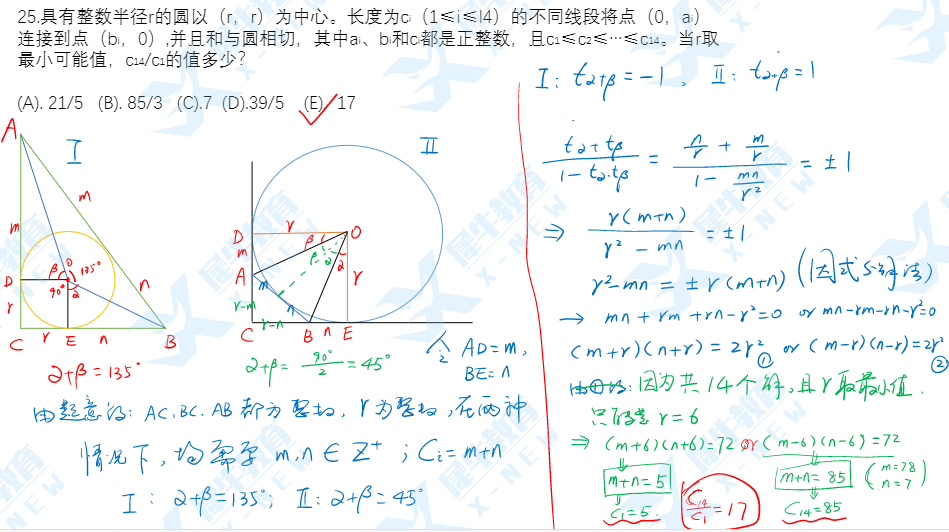 25.具有整数半径r的圆以（r，r）为中心。长度为cᵢ（1≤i≤l4）的不同线段将点（0，aᵢ）
连接到点（bᵢ，0）,并且和与圆相切，其中aᵢ、bᵢ和cᵢ都是正整数，且c₁≤c₂≤…≤c₁₄。当r取
最小可能值，c₁₄/c₁的值多少？
(A). 21/5 (B). 85/3 (C).7 (D).39/5 (E). 17
A
I
m
m
D
β
O
135°
90°
α
n
r
C
r
E
n
B
α+β=135°
II
D
r
O
β
β
α
α
m
A
m
r
r-m
n
C
r-n
B
n
E
α+β= 90°/2 =45°
令 AD=m,
BE=n
由题意得: AC, BC, AB 都为整数, r为整数, 在两种
情况下, 均需要 m,n∈Z⁺ ; Cᵢ=m+n
I : α+β=135°; II: α+β=45°
I: tα+β=-1 , II: tα+β=1
(tα+tβ)/(1-tα·tβ) = (n/r + m/r)/(1 - mn/r²) = ±1
⇒ r(m+n)/(r²-mn) = ±1
r²-mn = ±r(m+n) (因式分解法)
→ mn+rm+rn-r²=0 or mn-rm-rn-r²=0
(m+r)(n+r)=2r² ① or (m-r)(n-r)=2r² ②
因为共14个解, 且r取最小值.
只能是 r=6
⇒ (m+6)(n+6)=72 or (m-6)(n-6)=72
m+n=5
m+n=85
(m=78
n=7)
C₁=5
C₁₄/C₁=17
C₁₄=85
犀牛教育
X-NEW
犀牛教育
X-NEW
犀牛教育
X-NEW